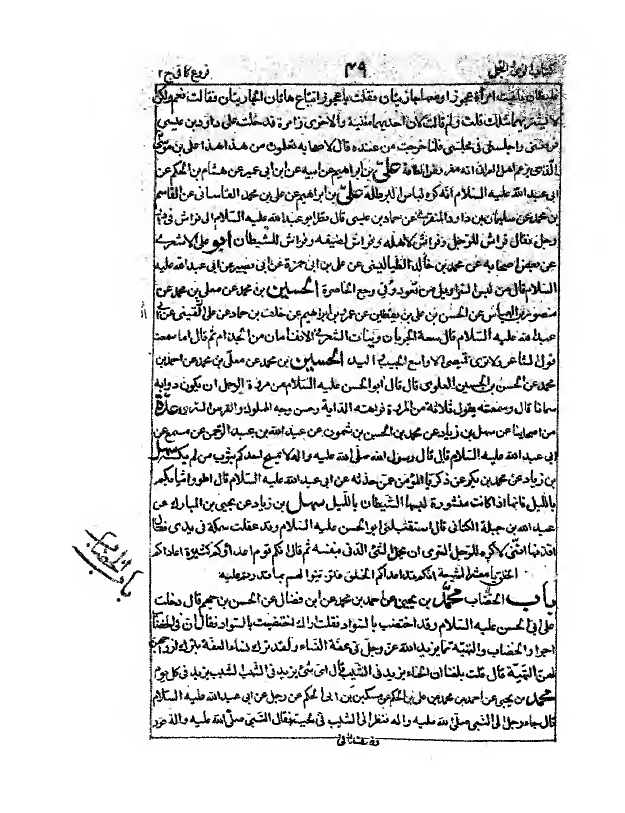 كتاب الزي والتجمل ٤٩ فروع كافي ج ٢
امرأة عجوزا ومعها جاريتان فقلت يا عجوز اتباع هاتان الجاريتان فقالت نعم ولكن
لا يشتريهما مثلك قلت ولم قالت لان احديهما مغنية والاخرى زامرة فدخلت على داود بن عيسى
فرفعني واجلسني في مجلسي فلما خرجت من عنده قال لاصحابه تعلمون من هذا هذا علي بن موسى
الذي يزعم اهل العراق انه مفروض الطاعة علي بن ابراهيم عن ابيه عن ابن ابي عمير عن هشام بن الحكم عن
ابي عبد الله عليه السلام انه كره لباس البرطلة علي بن ابراهيم عن علي بن محمد القاساني عن القاسم
بن محمد عن سليمان بن داود المنقري عن حماد بن عيسى قال نظر ابو عبد الله عليه السلام الى فراش في دار
رجل فقال فراش للرجل وفراش لاهله وفراش لضيفه وفراش للشيطان ابو علي الاشعري
عن بعض اصحابه عن محمد بن خالد الطيالسي عن علي بن ابي حمزة عن ابي بصير عن ابي عبد الله عليه
السلام قال من لبس السراويل من قعود وقي وجع الخاصرة الحسين بن محمد عن معلى بن محمد عن
منصور بن العباس عن الحسن بن علي بن يقطين عن عمرو بن ابراهيم عن خلف بن حماد عن علي القمي عن ابي
عبد الله عليه السلام قال سعة الجربان ونبات الشعر في الانف امان من الجذام ثم قال اما سمعت
قول الشاعر ولا ترى قميصي الا واسع الجيب واليد الحسين بن محمد عن معلى بن محمد عن احمد بن
محمد عن الحسن بن الحسين العلوي قال قال ابو الحسن عليه السلام من مروة الرجل ان يكون دوابه
سمانا قال وسمعته يقول ثلاثة من المروة فراهة الدابة وحسن وجه المملوك والفرش السري عدة
من اصحابنا عن سهل بن زياد عن محمد بن الحسن بن شمون عن عبد الله بن عبد الرحمن عن مسمع عن
ابي عبد الله عليه السلام قال قال رسول الله صلى الله عليه واله لا يمسح احدكم بثوب من لم يكسه سهل
بن زياد عن محمد بن بكر عن زكريا المؤمن عمن حدثه عن ابي عبد الله عليه السلام قال اطووا ثيابكم
بالليل فانها اذا كانت منشورة لبسها الشيطان بالليل سهل بن زياد عن يحيى بن المبارك عن
عبد الله بن جبلة الكناني قال استقبلني ابو الحسن عليه السلام وقد علقت سمكة في يدي فقال
اقذفها انني لاكره للرجل السري ان يحمل الشيء الدني بنفسه ثم قال انكم قوم اعداؤكم كثيرة عاداكم
الخلق يا معشر الشيعة انكم قد عاداكم الخلق فتزينوا لهم بما قدرتم عليه
باب الخضاب محمد بن يحيى عن احمد بن محمد عن ابن فضال عن الحسن بن جهم قال دخلت
على ابي الحسن عليه السلام وقد اختضب بالسواد فقلت اراك اختضبت بالسواد فقال ان في الخضاب
اجرا والخضاب والتهيئة مما يزيد الله عز وجل في عفة النساء ولقد ترك نساء العفة بترك ازواجهن
لهن التهيئة قال قلت بلغنا ان الحناء يزيد في الشيب قال اي شيء يزيد في الشيب الشيب يزيد في كل يوم
محمد بن يحيى عن احمد بن محمد عن علي بن الحكم عن مسكين بن ابي الحكم عن رجل عن ابي عبد الله عليه السلام
قال جاء رجل الى النبي صلى الله عليه واله فنظر الى الشيب في لحيته فقال النبي صلى الله عليه واله نور
باب الخضاب